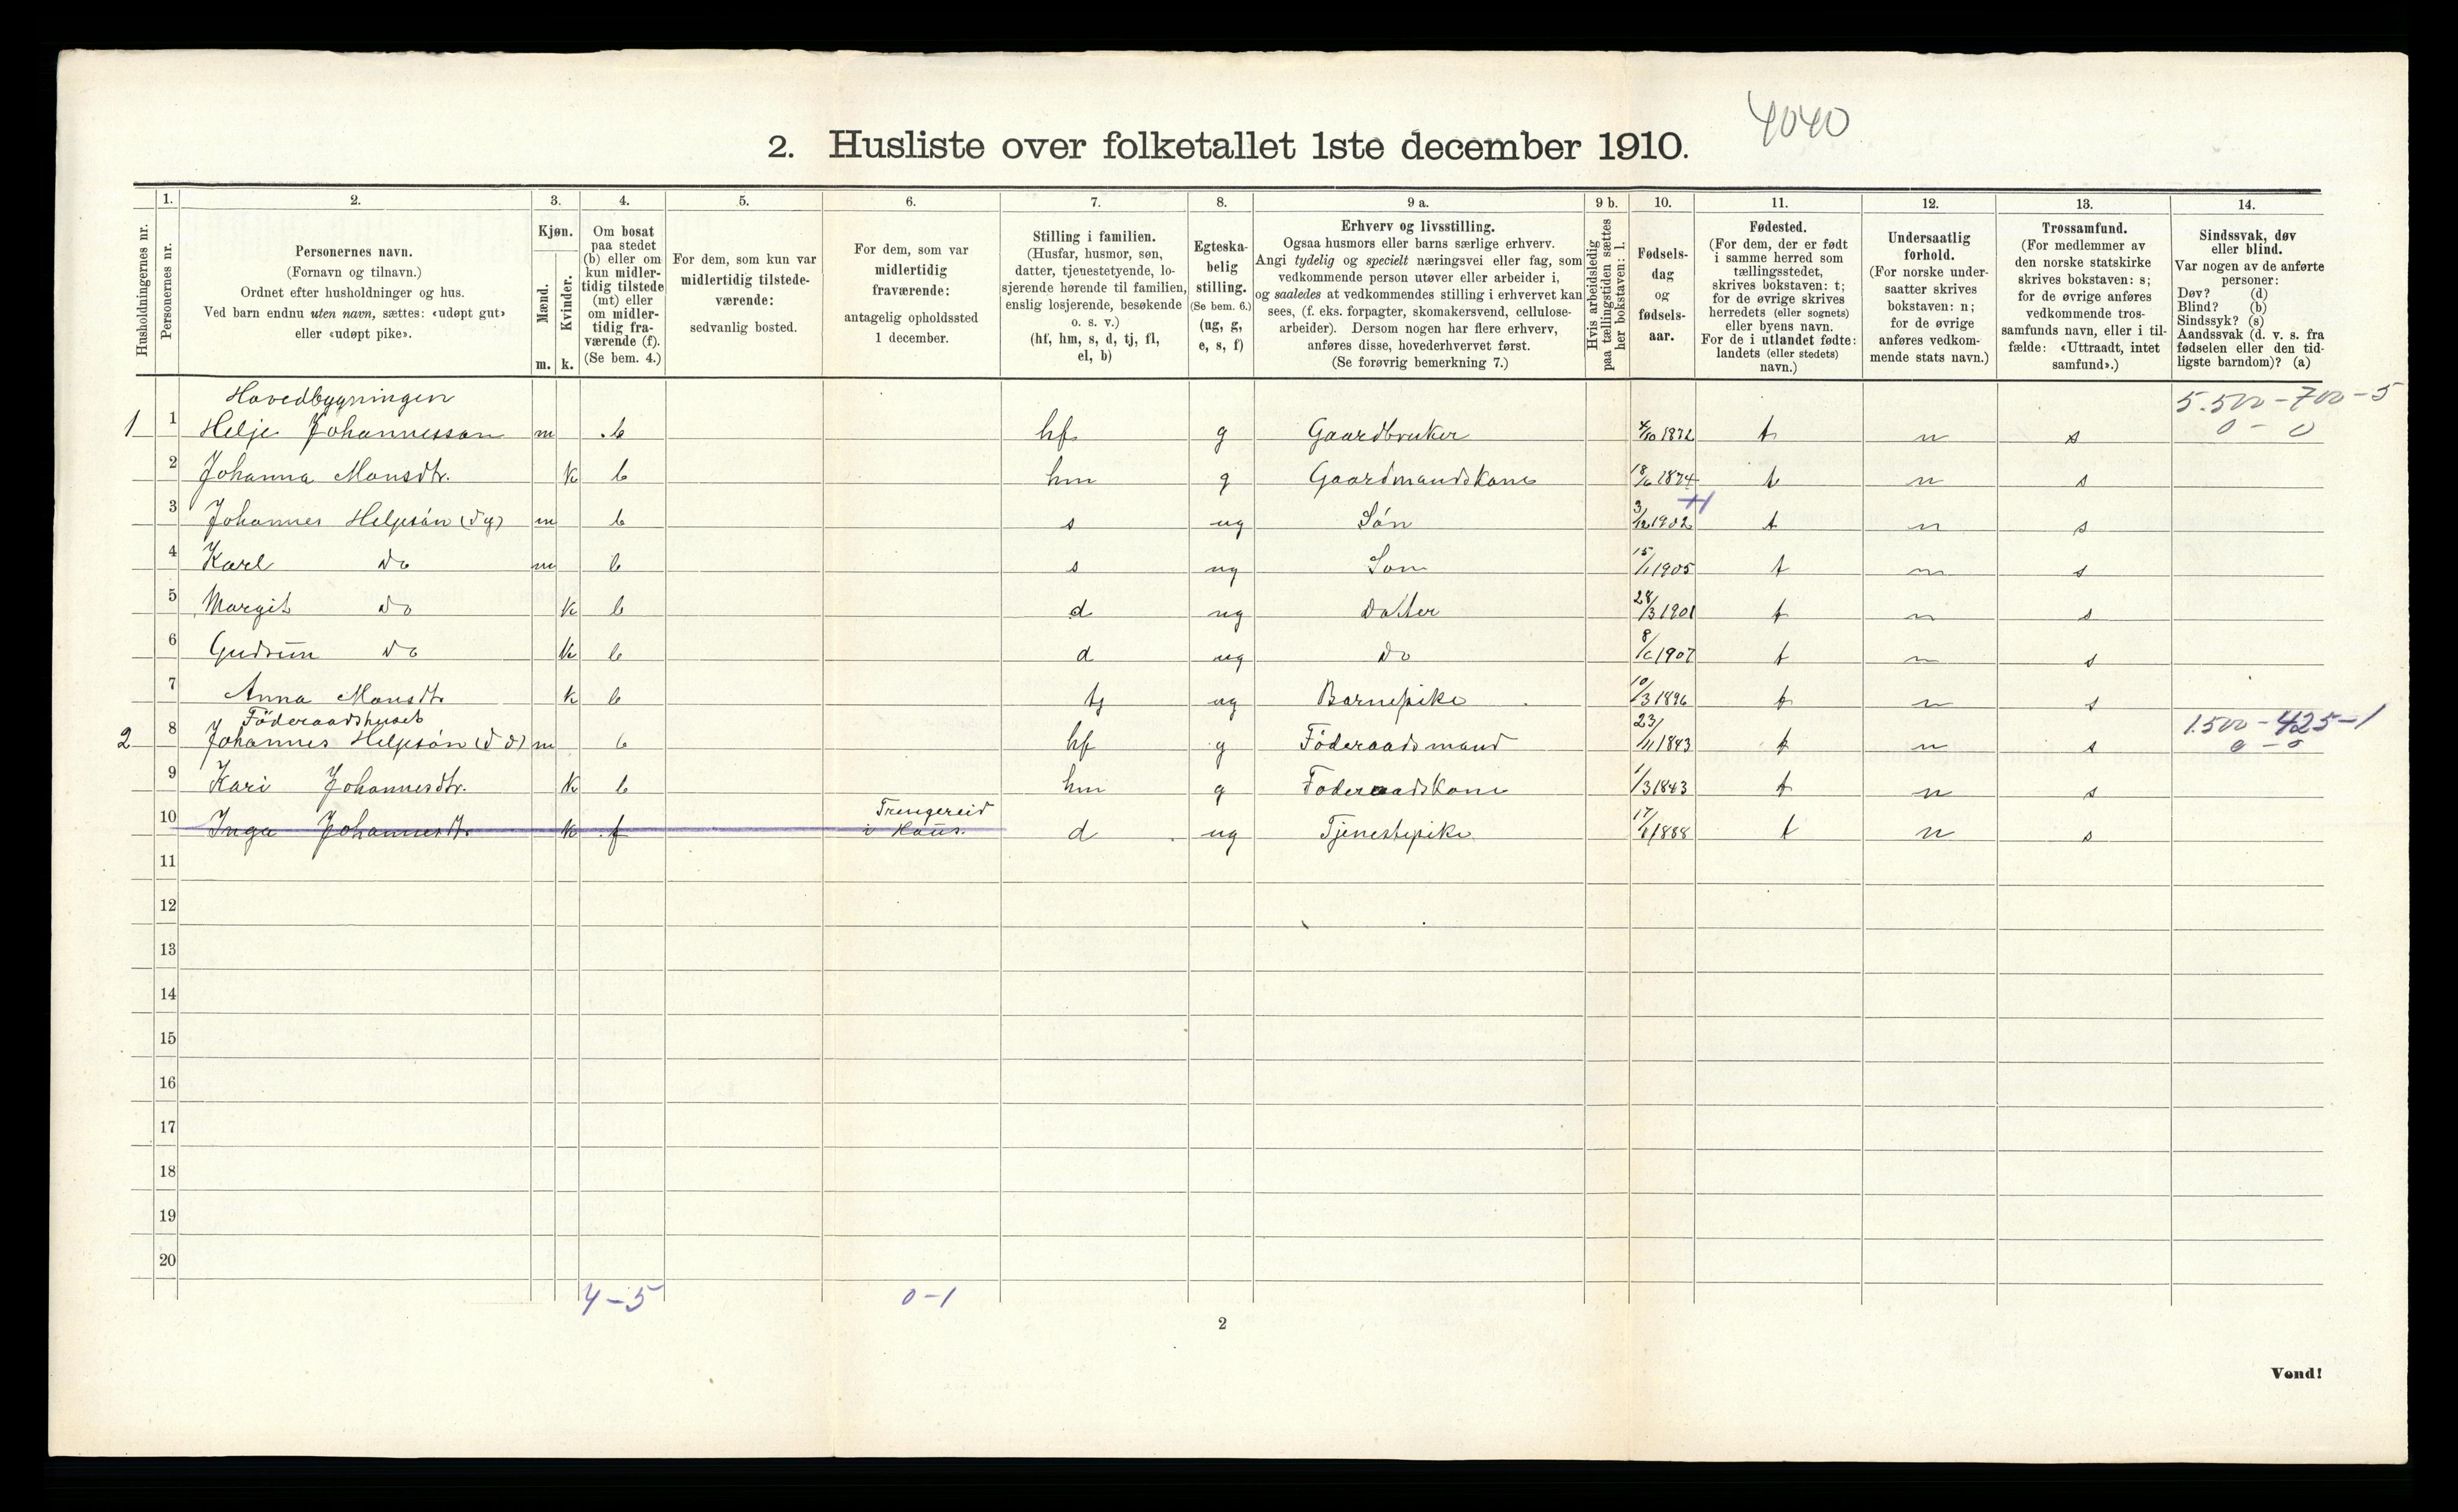 4040
2. Husliste over folketallet 1ste december 1910.
1. 2. 3. 4. 5. 6. 7. 8. 9 a. 9 b. 10. 11. 12. 13. 14.
Husholdningernes nr.
Personernes nr.
Personernes navn.
(Fornavn og tilnavn.)
Ordnet efter husholdninger og hus.
Ved barn endnu uten navn, sættes: «udøpt gut»
eller «udøpt pike».
Kjøn.
Mænd.
Kvinder.
m. k.
Om bosat
paa stedet
(b) eller om
kun midler-
tidig tilstede
(mt) eller
om midler-
tidig fra-
værende (f).
(Se bem. 4.)
For dem, som kun var
midlertidig tilstede-
værende:
sedvanlig bosted.
For dem, som var
midlertidig
fraværende:
antagelig opholdssted
1 december.
Stilling i familien.
(Husfar, husmor, søn,
datter, tjenestetyende, lo-
sjerende hørende til familien,
enslig losjerende, besøkende
o. s. v.)
(hf, hm, s, d, tj, fl,
el, b)
Egteska-
belig
stilling.
(Se bem. 6.)
(ug, g,
e, s, f)
Erhverv og livsstilling.
Ogsaa husmors eller barns særlige erhverv.
Angi tydelig og specielt næringsvei eller fag, som
vedkommende person utøver eller arbeider i,
og saaledes at vedkommendes stilling i erhvervet kan
sees, (f. eks. forpagter, skomakersvend, cellulose-
arbeider). Dersom nogen har flere erhverv,
anføres disse, hovederhvervet først.
(Se forøvrig bemerkning 7.)
Hvis arbeidsledig
paa tællingstiden sættes
her bokstaven: l.
Fødsels-
dag
og
fødsels-
aar.
Fødested.
(For dem, der er født
i samme herred som
tællingsstedet,
skrives bokstaven: t;
for de øvrige skrives
herredets (eller sognets)
eller byens navn.
For de i utlandet fødte:
landets (eller stedets)
navn.)
Undersaatlig
forhold.
(For norske under-
saatter skrives
bokstaven: n;
for de øvrige
anføres vedkom-
mende stats navn.)
Trossamfund.
(For medlemmer av
den norske statskirke
skrives bokstaven: s;
for de øvrige anføres
vedkommende tros-
samfunds navn, eller i til-
fælde: «Uttraadt, intet
samfund».)
Sindssvak, døv
eller blind.
Var nogen av de anførte
personer:
Døv? (d)
Blind? (b)
Sindssyk? (s)
Aandssvak (d. v. s. fra
fødselen eller den tid-
ligste barndom)? (a)
Hovedbygningen 5.500-700-5
1 1 Helje Johannesson m b hf g Gaardbruker 4/10 1872 t n s 0-0
2 Johanna Monsdtr. k b hm g Gaardmandskone 18/6 1874 t n s
3 Johannes Heljesón (dy) m b s ug Són 3/12 1902 t n s
4 Karl do m b s ug Son 15/1 1905 t n s
5 Margit do k b d ug Datter 28/3 1901 t n s
6 Gudrun do k b d ug do 8/6 1907 t n s
7 Anna Monsdtr k b tj ug Barnepike 10/3 1896 t n s
Föderaadshuset 1.500-425-1
2 8 Johannes Heljesón (d d) m b hf g Föderaadsmand 23/11 1843 t n s 0-0
9 Kari Johannesdtr. k b hm g Foderaadskone 1/3 1843 t n s
Trengereid
10 Inga Johannesdtr. k f i Haus. d ug Tjenestepike 17/8 1888 t n s
11
12
13
14
15
16
17
18
19
20
4-5 0-1
2
Vend!